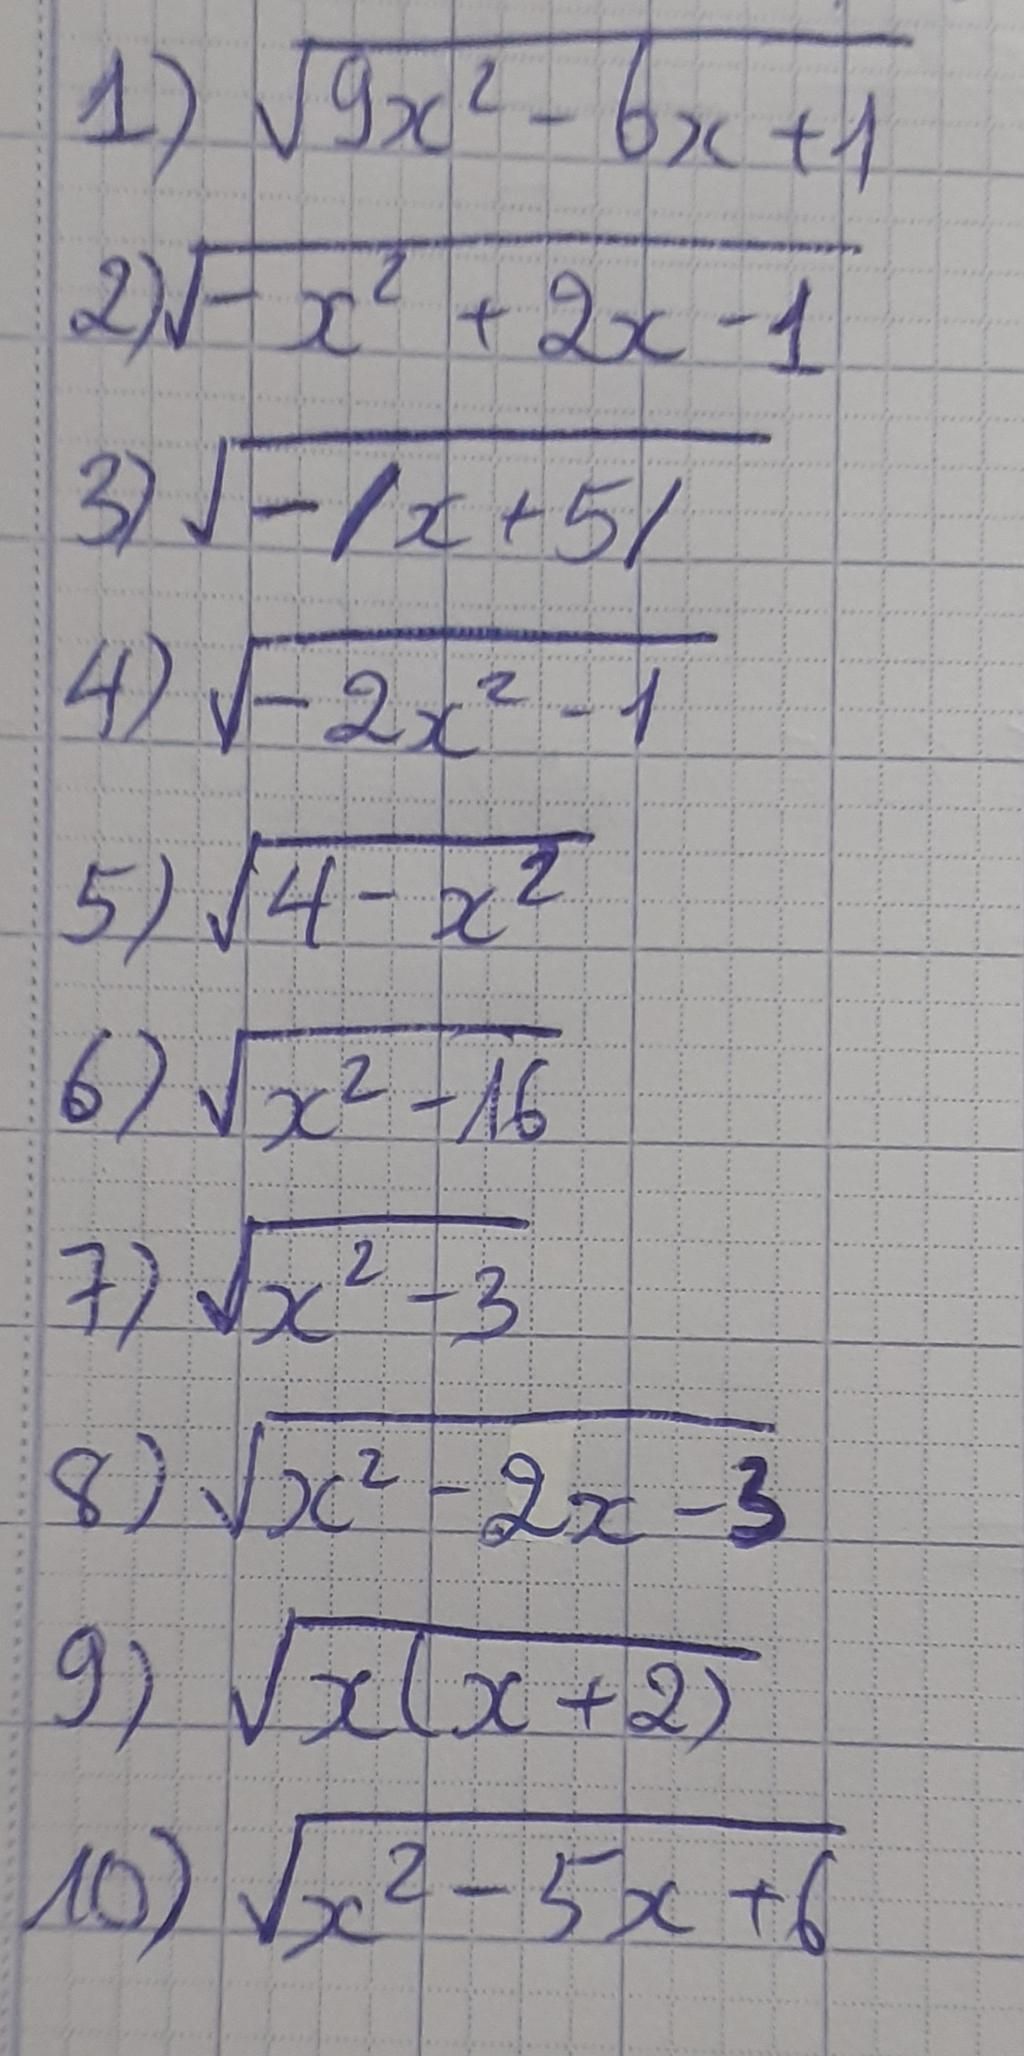 1) √(9x² - 6x + 1)
2) √(-x² + 2x - 1)
3) √(-/x + 5/)
4) √(-2x² - 1)
5) √(4 - x²)
6) √(x² - 16)
7) √(x² - 3)
8) √(x² - 2x - 3)
9) √(x(x + 2))
10) √(x² - 5x + 6)